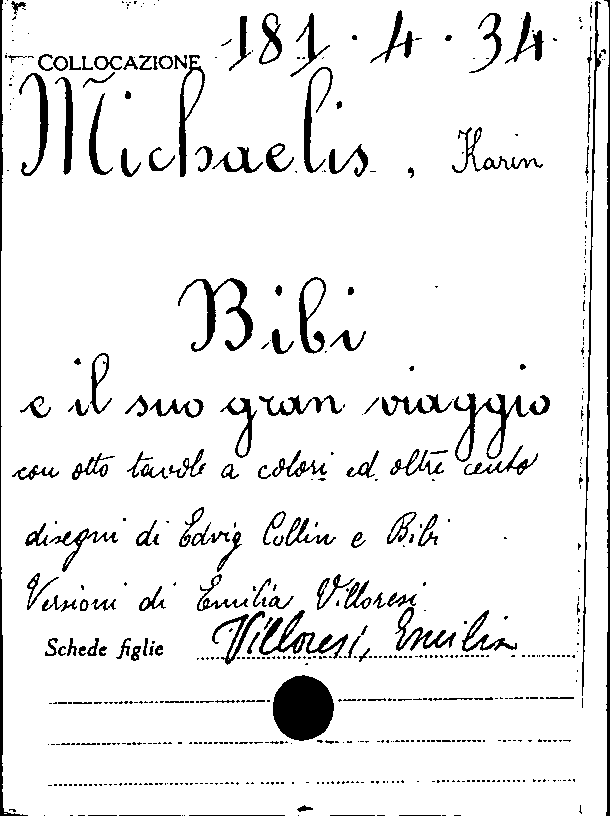 COLLOCAZIONE 181·4·34
Michaelis, Karin
Bibi
e il suo gran viaggio
con otto tavole a colori ed oltre cento
disegni di Edvig Collin e Bibi
Versioni di Emilia Villoresi
Schede figlie Villoresi, Emilia